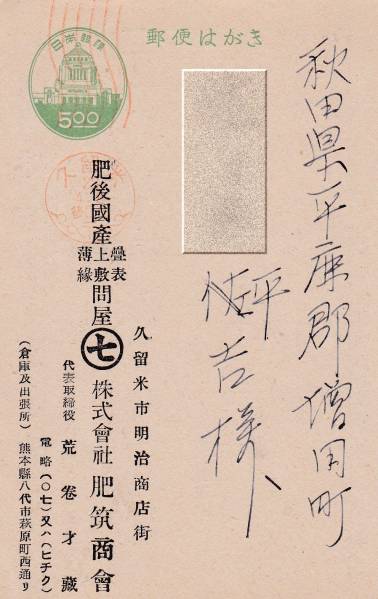 郵便はがき
日本郵便
5.00
秋田県平鹿郡増田町
平
佐吉様
久留米市明治商店街
肥後國産 疊表 上敷 薄縁 問屋 七 株式會社 肥筑商會
代表取締役 荒卷才藏
電略(〇七)又ハ(ヒチク)
(倉庫及出張所) 熊本縣八代市萩原町西通リ
久留米